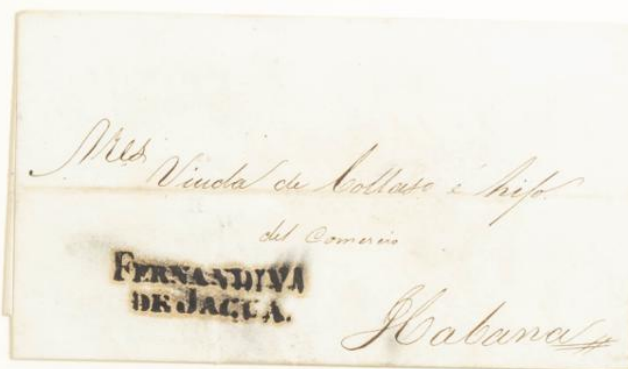 Sres
Viuda de Collaso é hijo
del Comercio
FERNANDINA
DE JAGUA.
Habana